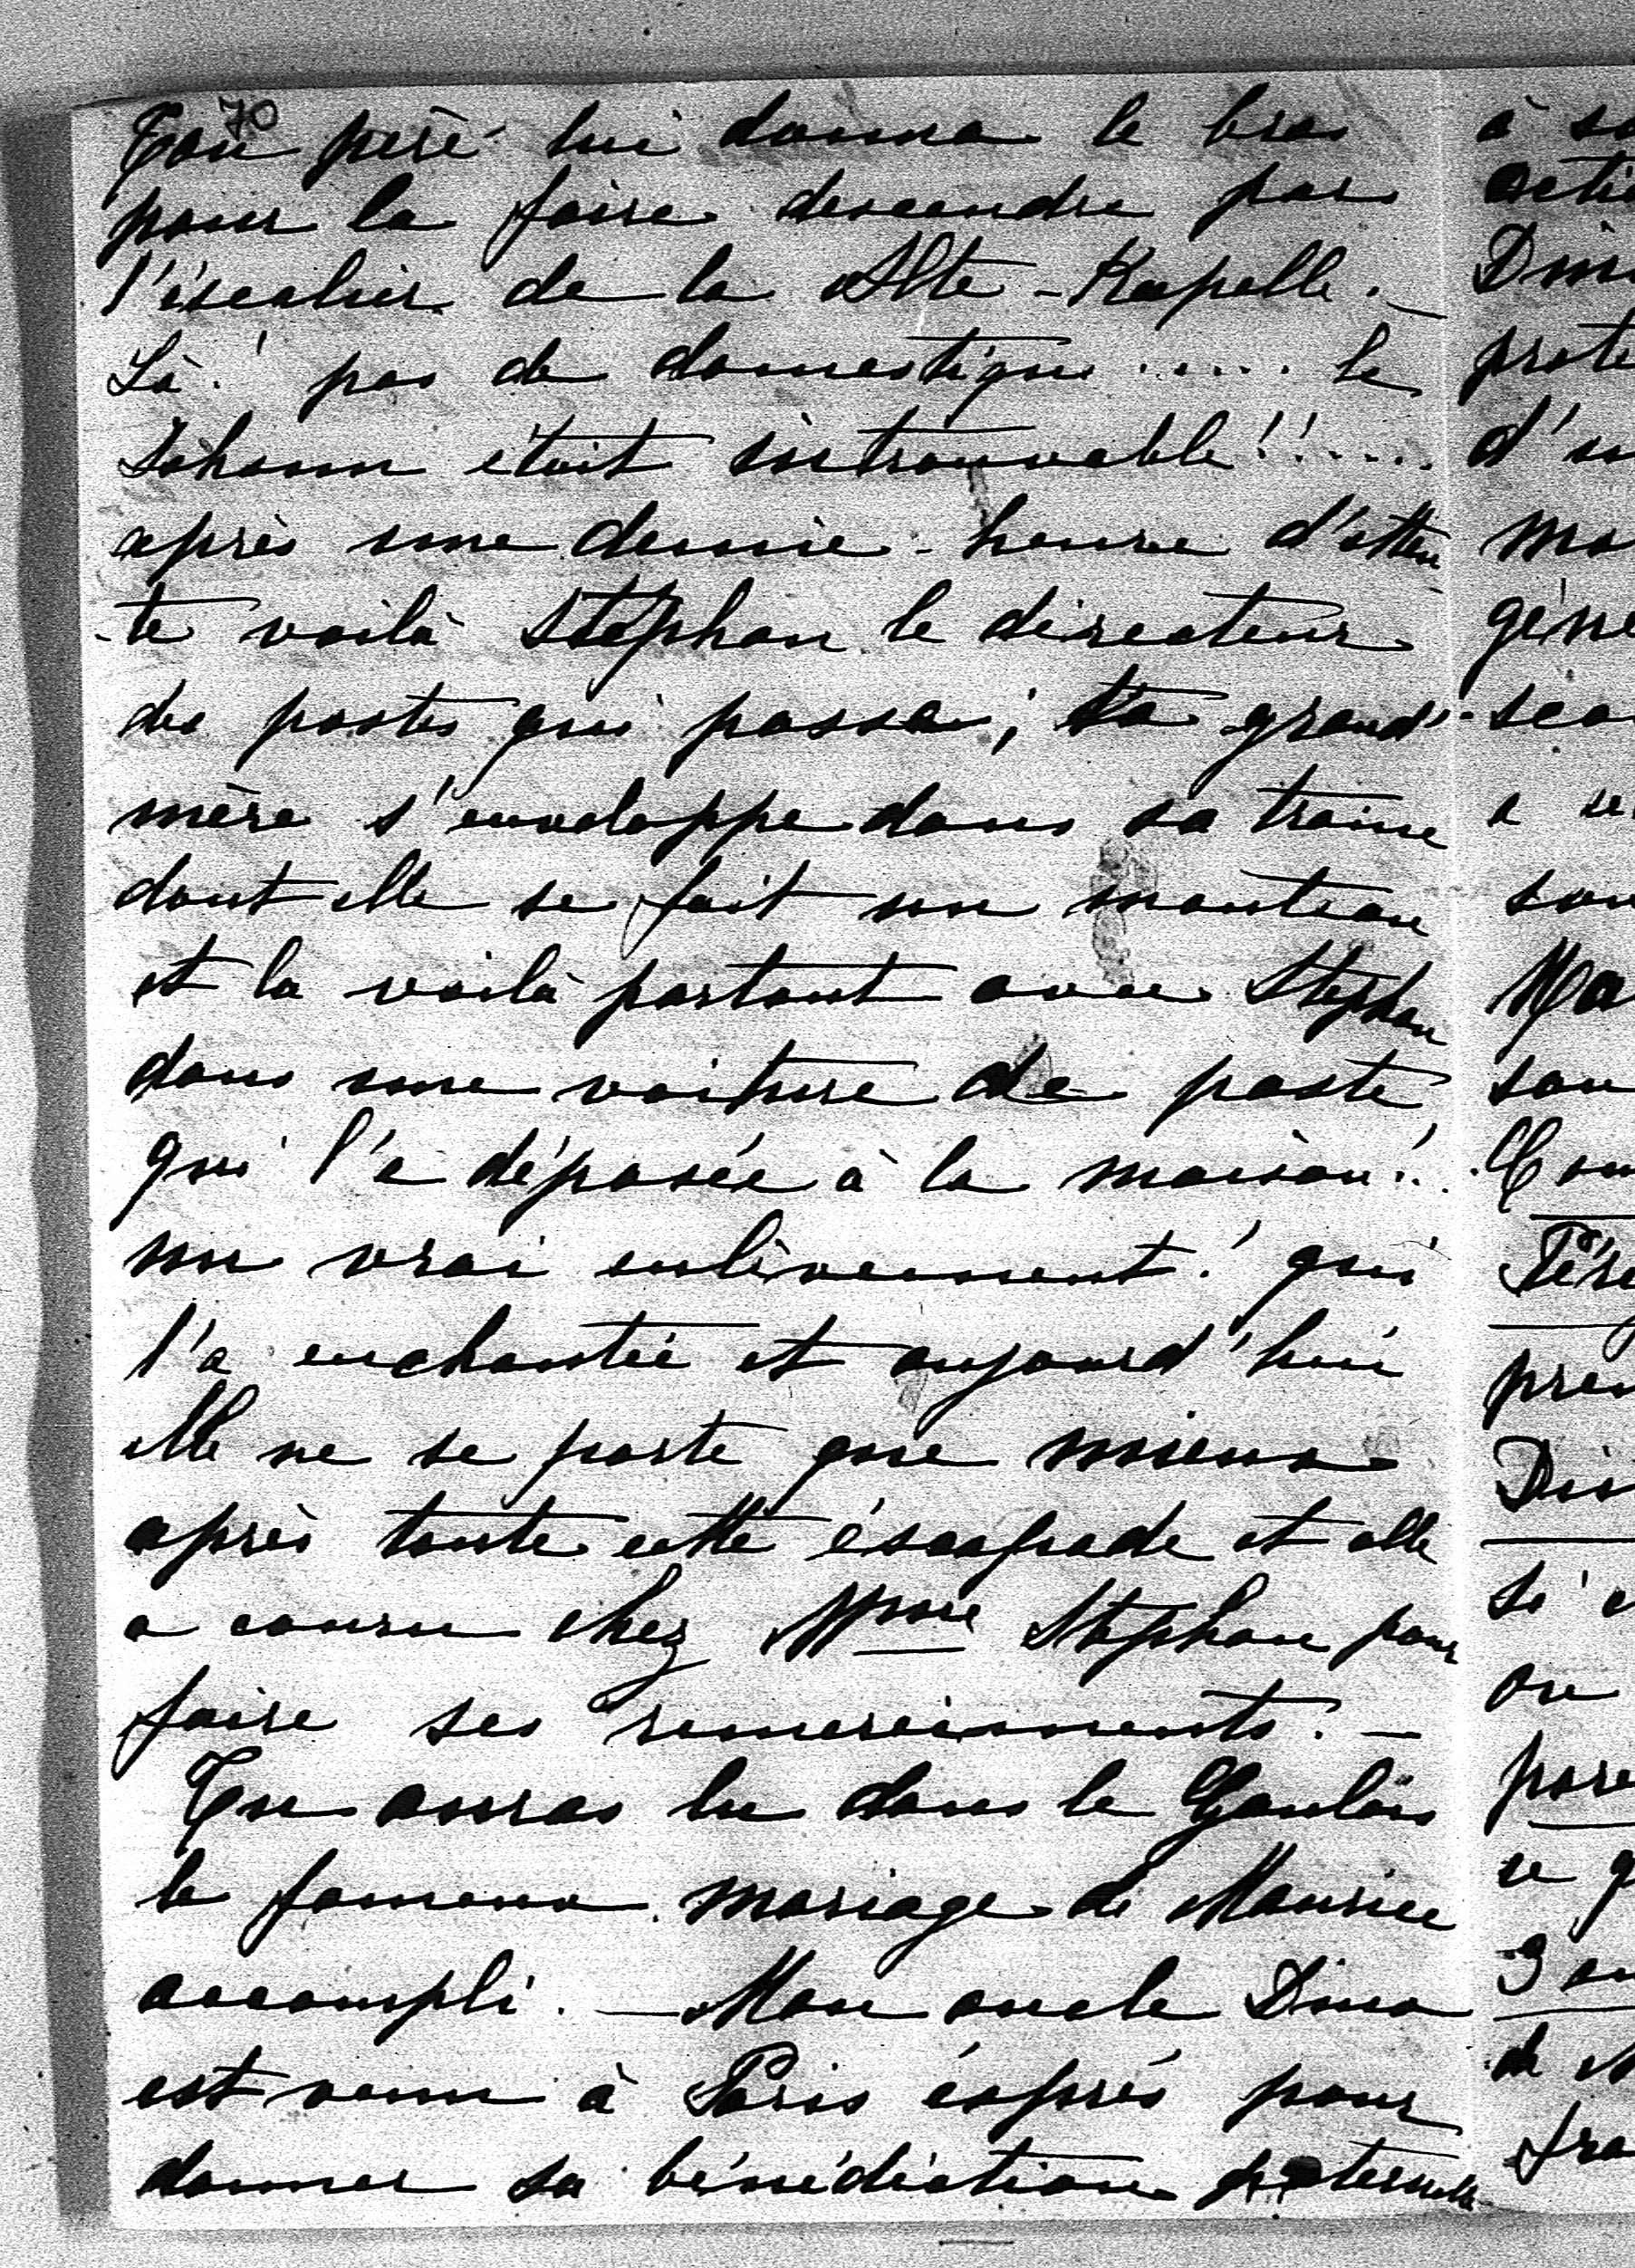 70
Ton père lui donna le bras
pour la faire descendre par
l'éscalier de la Alte-Kapelle. _
Là! pas de domestique..... le
Johann était introuvable!!.....
après une demie-heure d'atten
-te voilà Stephan le directeur
des postes qui passa; ta grand'
mère s'enveloppe dans sa traine
dont elle se fait un manteau
et la voilà partant avec Stephan
dans une voiture de poste
qui l'a déposée à la maison!..
un vrai enlèvement! qui
l'a enchantée et aujourd'hui
elle ne se porte que mieux
après toute cette éscapade et elle
a couru chez Mme Stephan pour
faire ses remerciements. _
Tu auras lu dans le Gaulois
le fameux mariage de Maurice
accompli. _ Mon oncle Dino
est venu à Paris éxprés pour
donner sa bénédiction paternelle